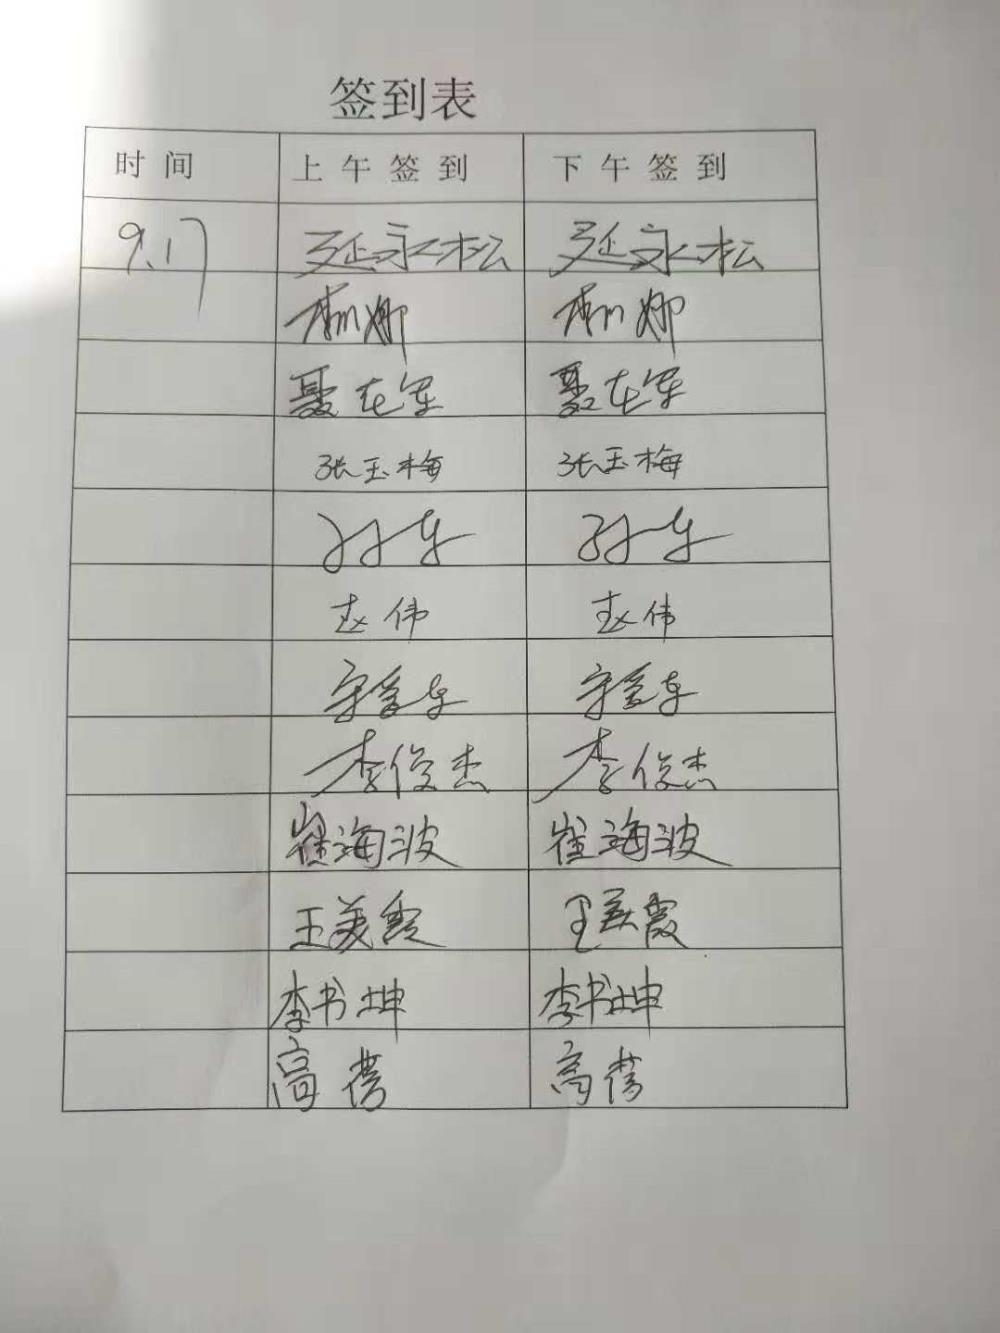 签到表
时间 上午签到 下午签到
9.17 延永松 延永松
娜 娜
聂左军 聂左军
张玉梅 张玉梅
孙 孙
赵伟 赵伟
宋 东 宋 东
李俊杰 李俊杰
崔海波 崔海波
王美霞 王美霞
李书坤 李书坤
高 高